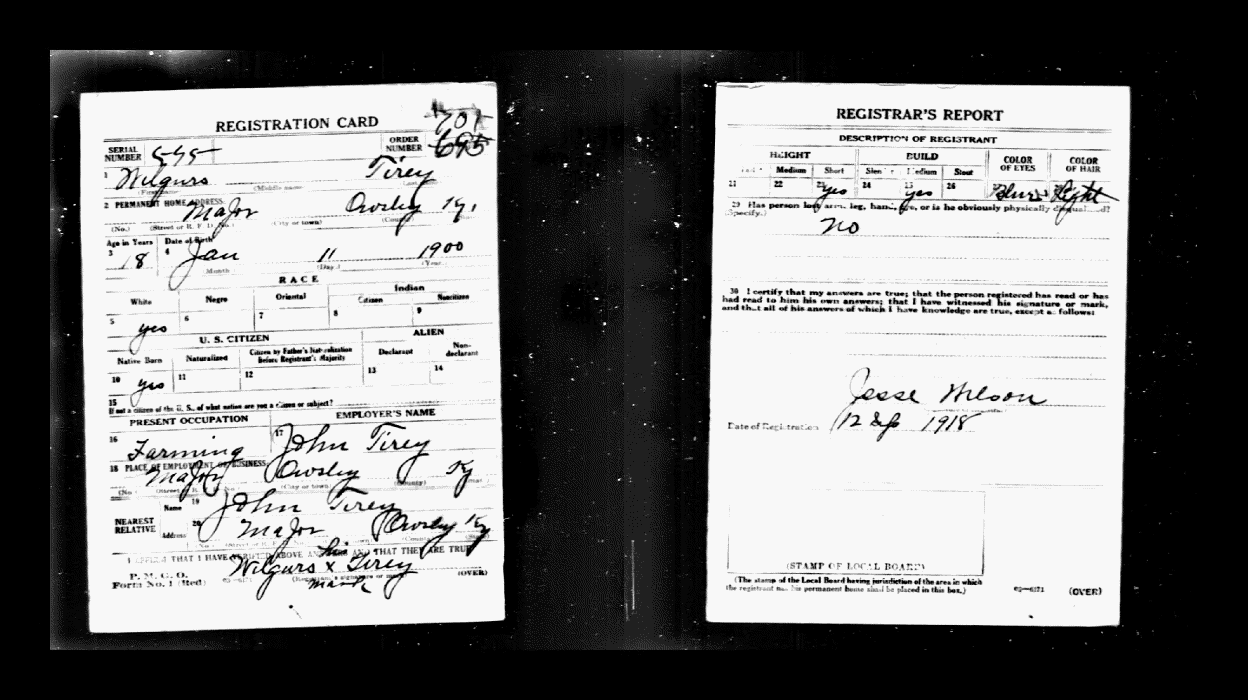 REGISTRATION CARD
701
SERIAL NUMBER 595 ORDER NUMBER 695
1 Wilgurs Tirey
(First name) (Middle name) (Last name)
2 PERMANENT HOME ADDRESS
Major Owsley Ky.
(No.) (Street or R. F. D. No.) (City or town)
Age in Years Date of Birth
3 18 4 Jan 11 1900
(Month) (Day.) (Year.)
RACE
White Negro Oriental Indian
Citizen Noncitizen
5 yes 6 7 8 9
U. S. CITIZEN ALIEN
Native Born Naturalized Citizen by Father's Naturalization Before Registrant's Majority Declarant Non-declarant
10 yes 11 12 13 14
15
If not a citizen of the U. S., of what nation are you a citizen or subject?
PRESENT OCCUPATION EMPLOYER'S NAME
16 Farming 17 John Tirey
18 PLACE OF EMPLOYMENT OR BUSINESS
Major Owsley Ky
(No.) (Street or R. F. D. No.) (City or town) (County) (State)
NEAREST RELATIVE Name 19 John Tirey
Address 20 Major Owsley Ky
I AFFIRM THAT I HAVE VERIFIED ABOVE ANSWERS AND THAT THEY ARE TRUE
his
Wilgurs x Tirey
mark
P. M. G. O.
Form No. 1 (Red) 03—6171 (Registrant's signature or mark) (OVER)
REGISTRAR'S REPORT
DESCRIPTION OF REGISTRANT
HEIGHT BUILD COLOR OF EYES COLOR OF HAIR
Tall Medium Short Slender Medium Stout
21 22 23 yes 24 25 yes 26 27 Blue 28 Light
29 Has person lost arm, leg, hand, eye, or is he obviously physically disqualified?
(Specify.)
no
30 I certify that my answers are true; that the person registered has read or has
had read to him his own answers; that I have witnessed his signature or mark,
and that all of his answers of which I have knowledge are true, except as follows:
Jesse Wilson
Date of Registration 12 Sep 1918
(STAMP OF LOCAL BOARD)
(The stamp of the Local Board having jurisdiction of the area in which
the registrant has his permanent home shall be placed in this box.)
03—6171 (OVER)